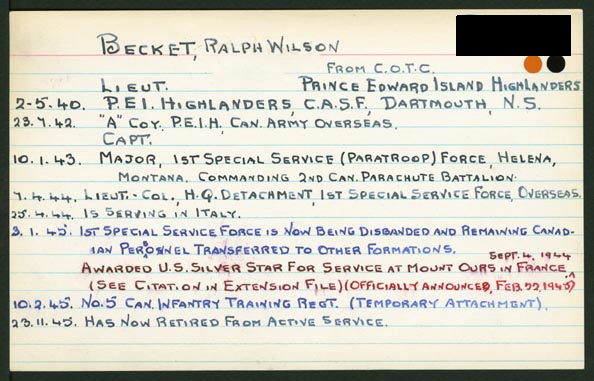 BECKET, RALPH WILSON
FROM C.O.T.C.
LIEUT. PRINCE EDWARD ISLAND HIGHLANDERS
2-5-40. P.E.I. HIGHLANDERS, C.A.S.F., DARTMOUTH, N.S.
23.7.42. "A" COY. P.E.I.H., CAN. ARMY OVERSEAS.
CAPT.
10.1.43. MAJOR, 1ST SPECIAL SERVICE (PARATROOP) FORCE, HELENA,
MONTANA. COMMANDING 2ND CAN. PARACHUTE BATTALION.
7.4.44. LIEUT.-COL., H.Q. DETACHMENT, 1ST SPECIAL SERVICE FORCE, OVERSEAS.
25.4.44. IS SERVING IN ITALY.
3.1.45. 1ST SPECIAL SERVICE FORCE IS NOW BEING DISBANDED AND REMAINING CANAD-
IAN PERSONNEL TRANSFERRED TO OTHER FORMATIONS.
SEPT. 4, 1944
AWARDED U.S. SILVER STAR FOR SERVICE AT MOUNT OURS IN FRANCE ^
(SEE CITATION IN EXTENSION FILE) (OFFICIALLY ANNOUNCED, FEB. 22, 1945)
10.2.45. NO.5 CAN. INFANTRY TRAINING REGT. (TEMPORARY ATTACHMENT).
23.11.45. HAS NOW RETIRED FROM ACTIVE SERVICE.